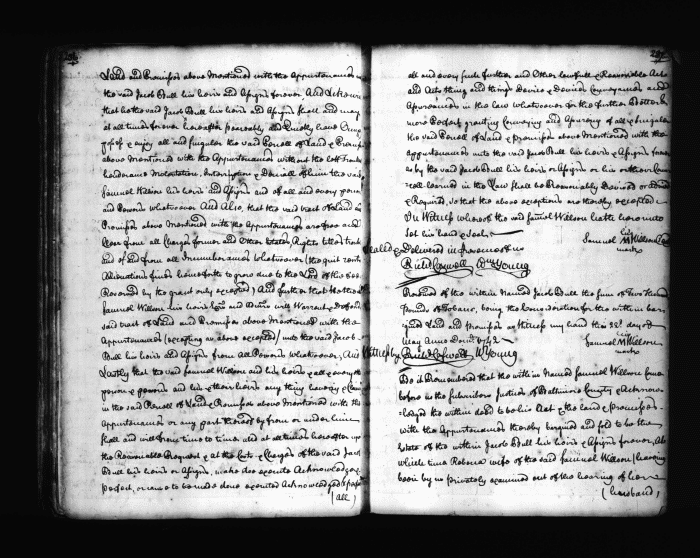 Land and Premises above Mentioned with the Appurtenances unto
the said Jacob Bull his heirs and Assigns forever And Likewise
that he the said Jacob Bull his heirs and Assigns shall and may
at all times forever hereafter peaceably and Quietly have
& enjoy all and singular the said Parcell of Land & Premises
above Mentioned with the Appurtenances without the Lett
Molestation, Interruption & Deniall of him the said
Samuel Willson his heirs and Assigns and of all and every person
and Persons whatsoever And Also, that the said tract of Land and
Premises above Mentioned with the Appurtenances are free and
Clear from all Charges former and Other Estates, Rights titles
and of and from all Incumbrances whatsoever (the quit rents
Alienation fines henceforth to grow due to the Lord of the
Reserved by the grant only excepted) And further that the said
Samuel Willson his heirs and will Warrant & Defend
said tract of Land and Premises above Mentioned with the
Appurtenances (excepting as above excepted) unto the said Jacob
Bull his heirs and Assigns from all Persons whatsoever, And
Lastly that the said Samuel Willson and his heirs & all & every other
person & persons and his & their heirs any thing having & Claiming
in the said Parcell of Land & Premises above Mentioned with the
Appurtenances or any part thereof by from or under him
shall and will from time to time and at all times hereafter upon
the Reasonable Request & at the Costs & Charges of the said Jacob
Bull his heirs or Assigns, make doe execute Acknowledge &
perfect, or cause to be made done executed Acknowledged &
(all)
all and every such further and Other lawfull & Reasonable Acts
and Acts thing and things Device & Devices Conveyances and
Assurances in the Law whatsoever for the further Better &
more Perfect granting Conveying and Assuring of all & singular
the said Parcell of Land & premises above Mentioned with the
appurtenances unto the said Jacob Bull his heirs & Assigns forever
as by the said Jacob Bull his heirs or Assigns or his or their
Learned in the Law shall be Reasonably Devised or
& Required, so that the above exceptions are thereby excepted
In Witness whereof the said Samuel Willson hath hereunto
Set his hand & Seale
Sealed & Delivered in presence of us
Samuel his M Willson
mark
Wm Young
Received of the within Named Jacob Bull the sum of Two
Pounds of Tobacco, being the Consideration for the within bar
gained Land and premises as Witness my hand this 22d day of
May Anno Domi 1742
Samuel his M Willson
mark
Witness by Wm Young
Be it Remembered that the within Named Samuel Willson
before us the subscribers Justices of Baltimore County & Acknow
ledged the within deed to be his Act & the land & premises
with the Appurtenances thereby bargained and sold to be the
Estate of the within Jacob Bull his heirs & Assigns forever, At
which time Rebecca wife of the said Samuel Willson (having
been by us privately examined out of the hearing of her
(husband)